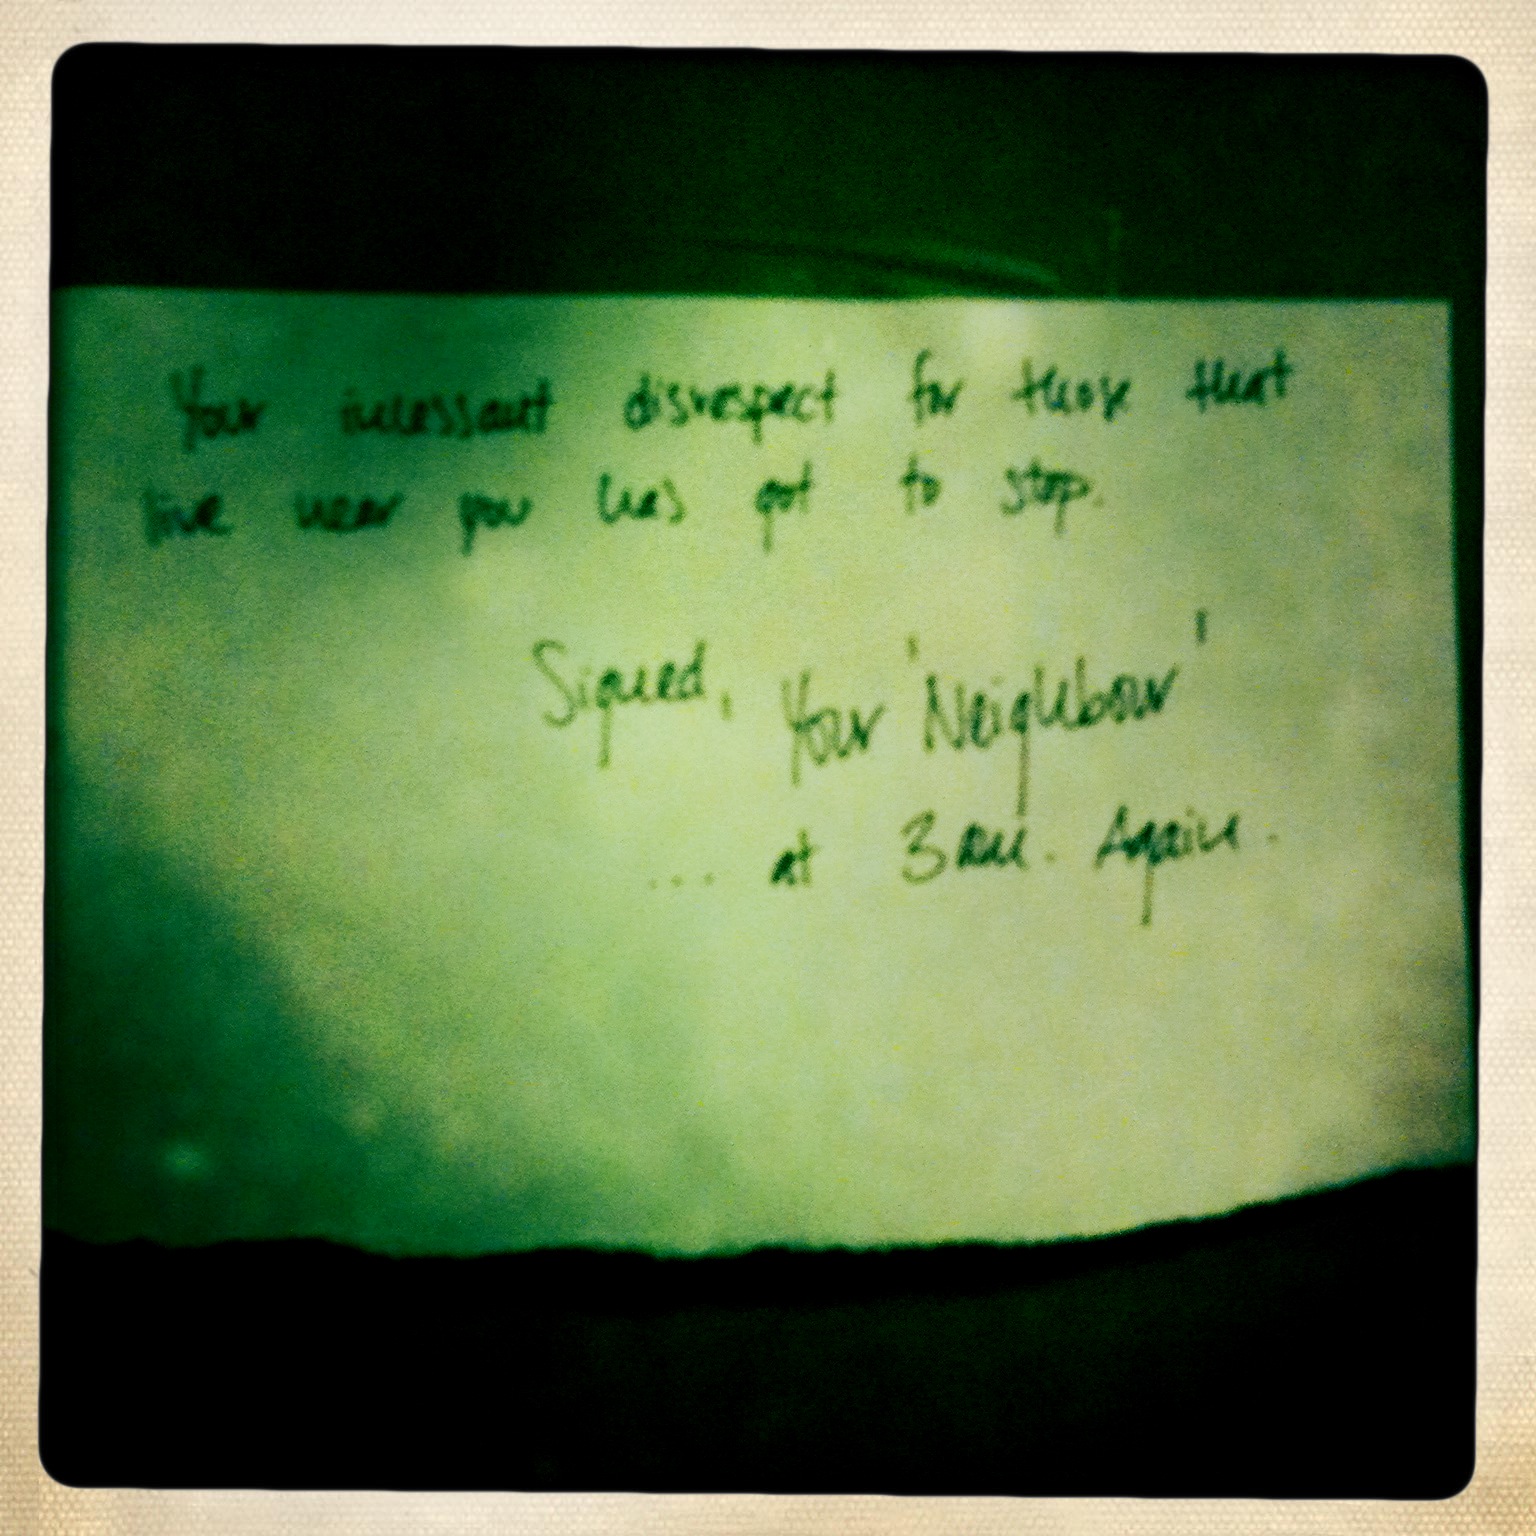 Your incessant disrespect for those that
live near you has got to stop.
Signed, Your 'Neighbour'
... at 3am. Again.